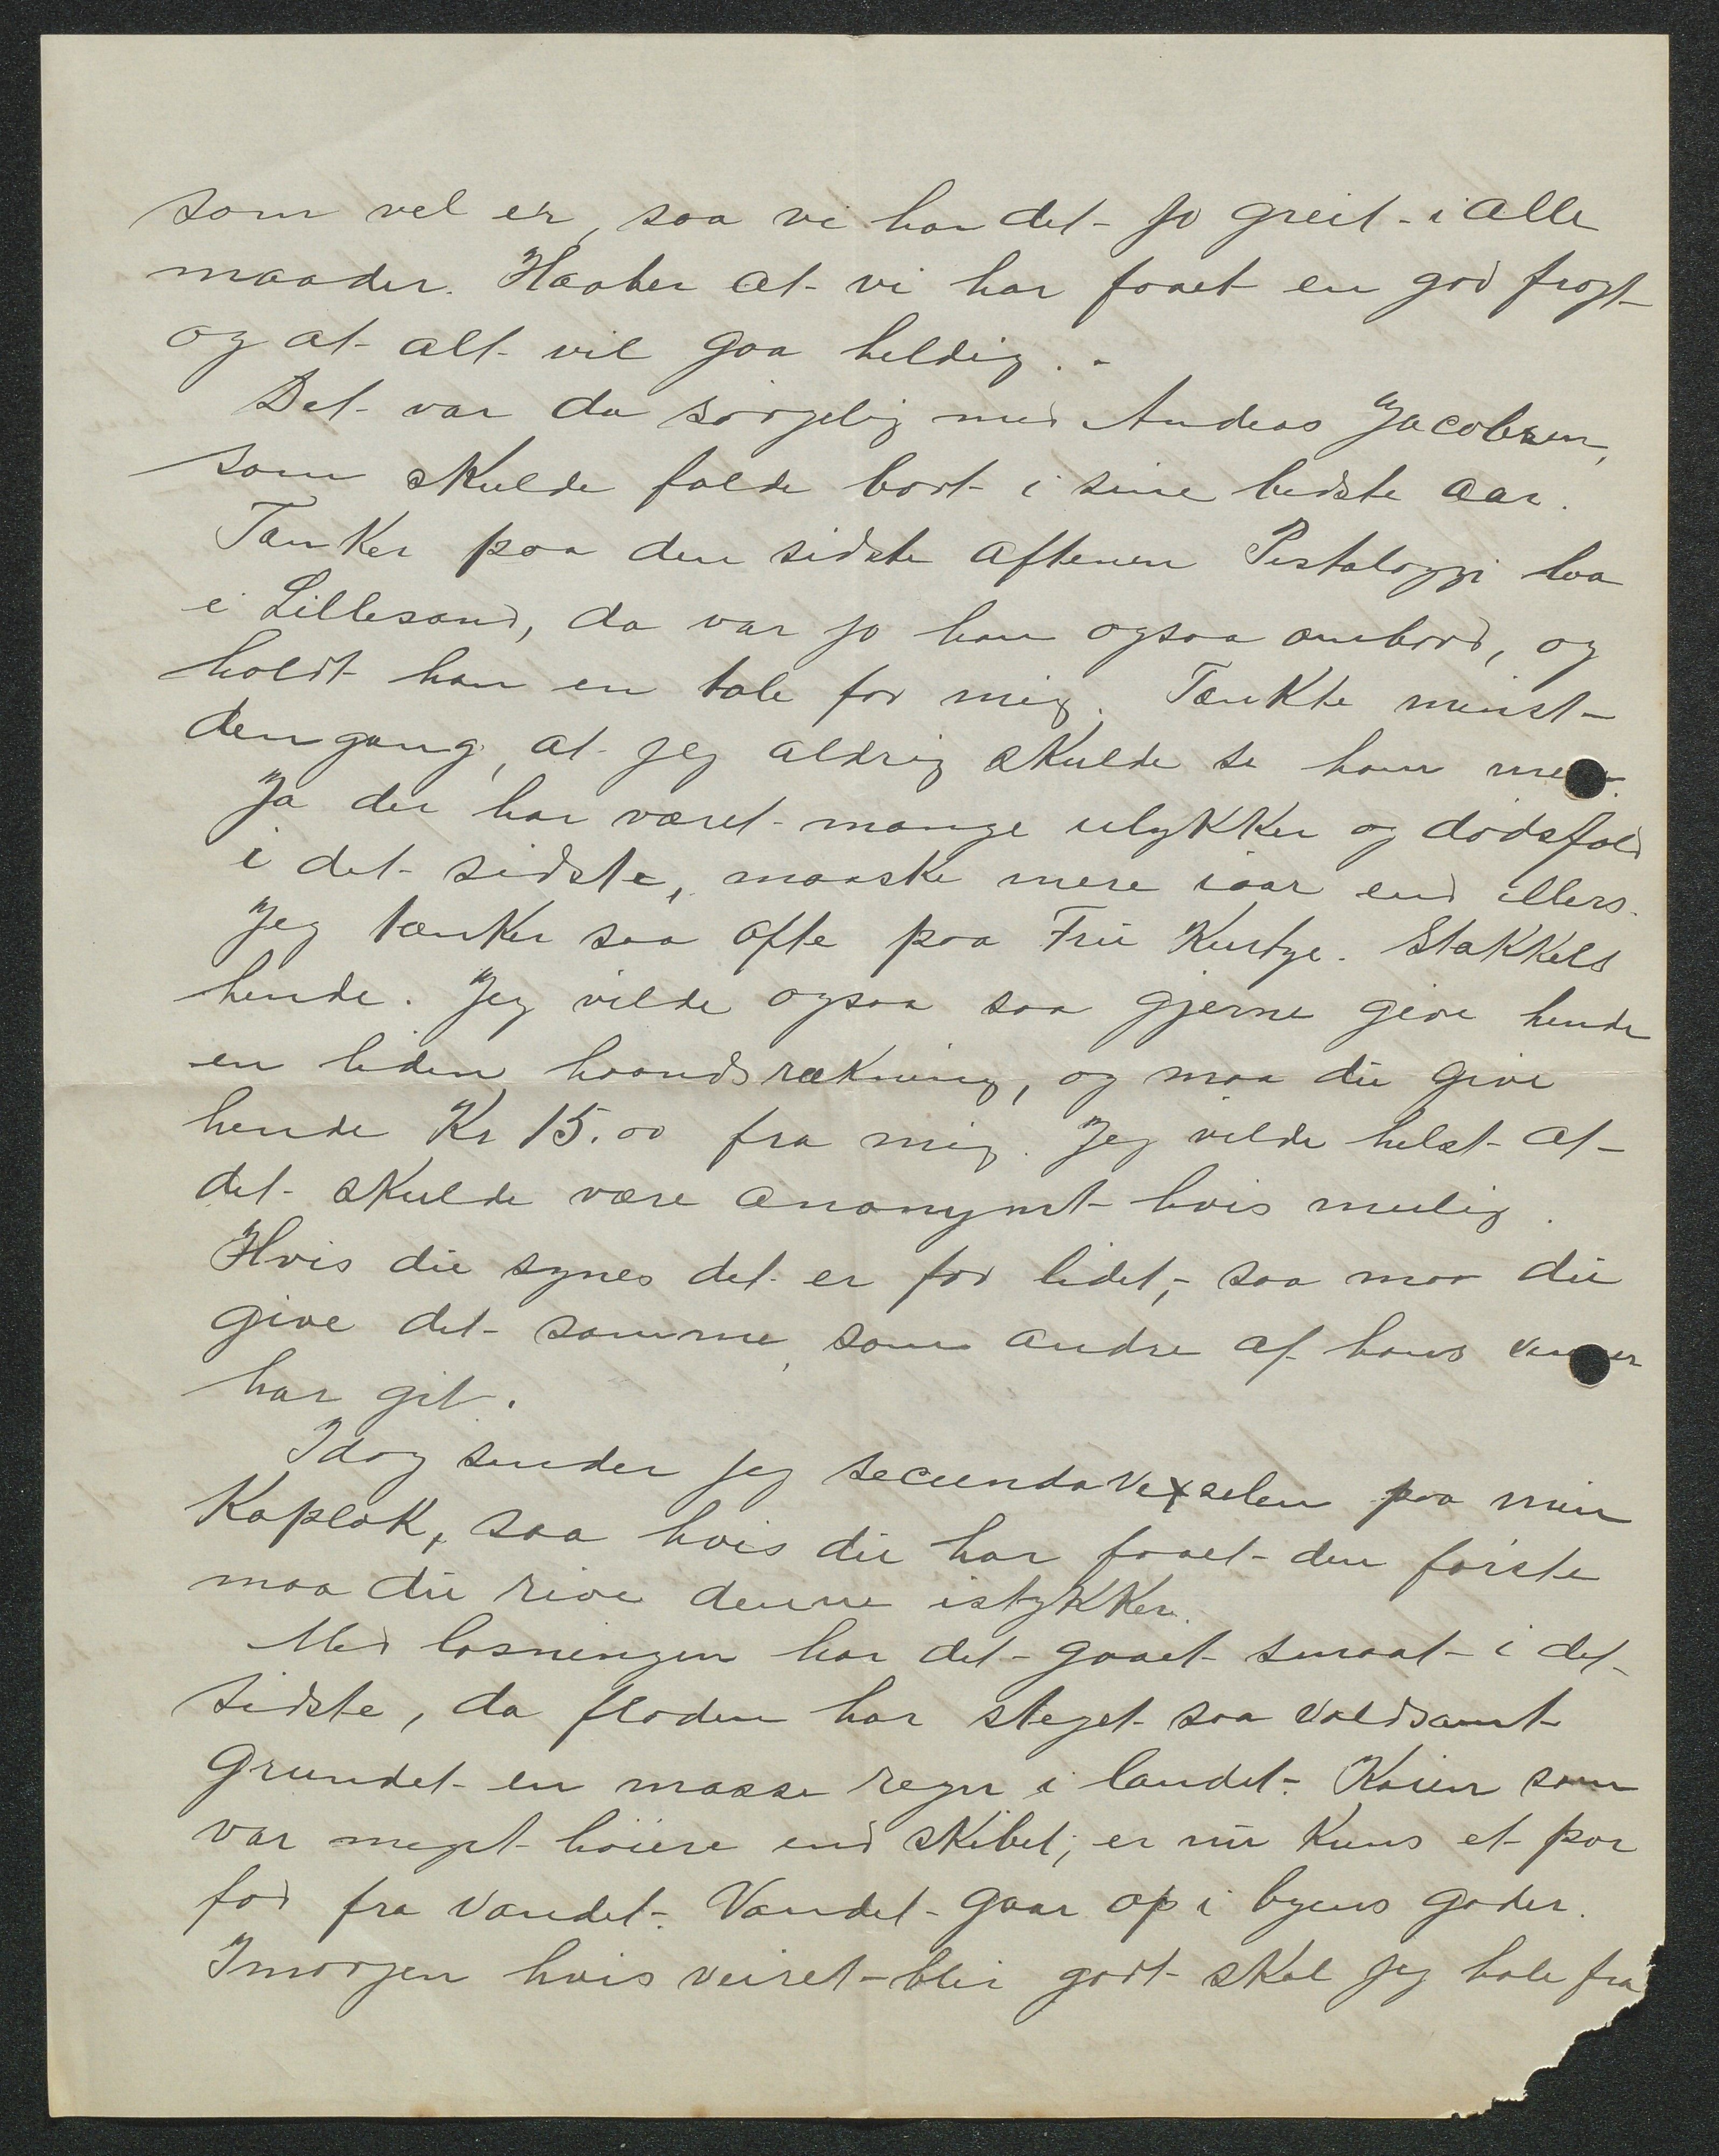 som vel er, saa vi har det jo greit i alle
maader. Haaber at vi har faaet en god fragt
og at alt vil gaa heldig. -
Det var da sörgelig med Andreas Jacobsen,
som skulde falde bort i sine bedste aar.
Tænker paa den sidste aftenen Pestalozzi laa
i Lillesand, da var jo han ogsaa ombord, og
holdt han en tale for mig. Tænkte minst
dengang, at jeg aldrig skulde se ham mer.
Ja der har været mange ulykker og dödsfald
i det sidste, maaske mere iaar end ellers.
Jeg tænker saa ofte paa Fru Kurtze. Stakkels
hende. Jeg vilde ogsaa saa gjerne give hende
en liden haandsrækning, og maa du give
hende Kr 15.00 fra mig. Jeg vilde helst at
det skulde være anonymt hvis mulig.
Hvis du synes det er for lidet, saa maa du
give det samme, som andre af hans venner
har git.
Idag sender jeg secundavexselen paa min
Kaplak, saa hvis du har faaet den förste
maa du rive denne istykker.
Med losningen har det gaaet smaat i det
sidste, da floden har steget saa voldsomt
grundet en masse regn i landet. Kaien som
var meget höiere end skibet, er nu kuns et par
fod fra vandet. Vandet gaar op i byens gader.
Imorgen hvis veiret blir godt skal jeg hale fra